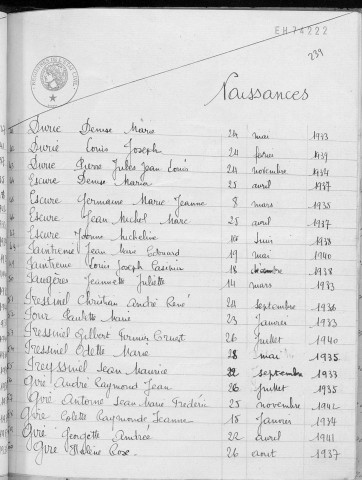 EH74222
239
Naissances
Durie Denise Marie 24 mai 1933
Durié Louis Joseph 24 février 1939
Durie Pierre Jules Jean Louis 24 novembre 1934
Escure Denise Maria 25 avril 1937
Escure Germaine Marie Jeanne 8 mars 1938
Escure Jean Michel Marc 25 avril 1937
Escure Yvonne Micheline 19 Juin 1938
Faintrenie Jean Marie Edouard 19 mai 1940
Faintrenie Louis Joseph Casimir 18 décembre 1938
Faugères Jeannette Juliette 14 mars 1933
Freyssinel Christian André René 24 septembre 1936
Four Paulette Marie 23 Janvier 1933
Freyssinel Gilbert Fernand Ernest 26 Juillet 1940
Freyssinel Odette Marie 28 mai 1935
Freyssinel Jean Maurice 22 septembre 1933
Giré André Raymond Jean 26 Juillet 1935
Giré Antoine Jean Marie Frédéric 25 novembre 1942
Giré Colette Raymonde Jeanne 18 Janvier 1934
Giré Georgette Andrée 22 avril 1941
Giré Hélène Rose 26 aout 1937